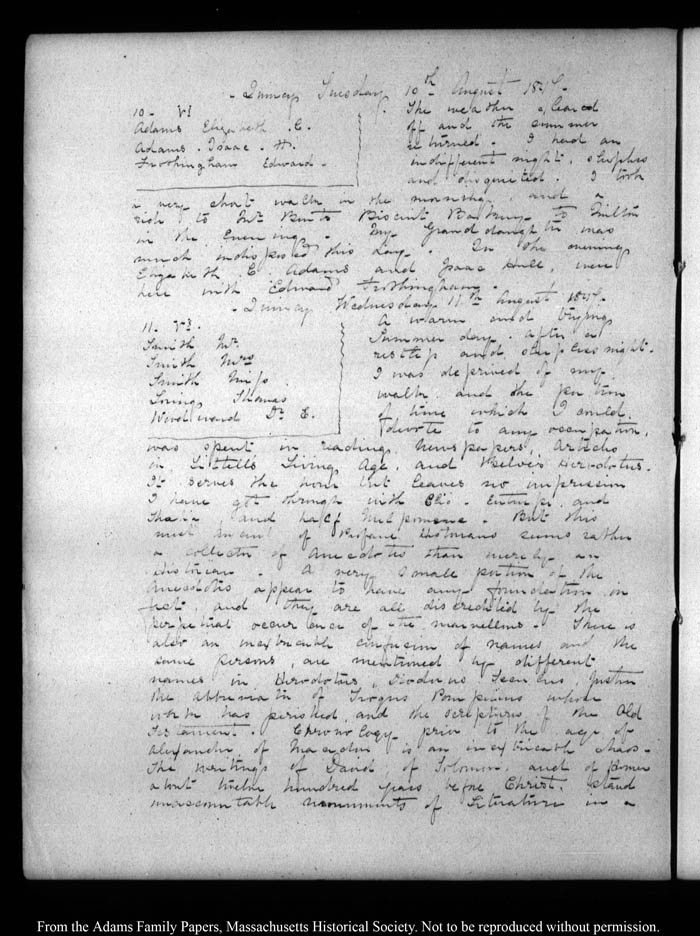 - Quincy Tuesday 10th August 1847.-
10. VI
Adams Elizabeth .C.
Adams . Isaac . H.
Frothingham Edward -
The weather cleared
off and the summer
returned. I had an
indifferent night, sleepless
and disquieted. I took
a very short walk in the morning, and a
ride to Mr Bents Biscuit Bakery to Milton
in the Evening. My Granddaughter was
much indisposed this day. In the evening
Elizabeth C. Adams and Isaac Hull, were
here with Edward Frothingham.
- Quincy Wednesday 11th August 1847.-
11. VI.
Smith Mr
Smith Mrs
Smith Miss
Loring Thomas
Woodward Dr E.
A warm and trying
Summer day, after a
restless and sleepless night.
I was deprived of my
walk, and the portion
of time which I could
devote to any occupation,
was spent in reading Newspapers, Articles
in Littell's Living Age, and Beloe's Herodotus.
It serves the hour but leaves no impression
I have got through with Clio. Euterpe, and
Thalia, and half Melpomene. But this
most ancient of Profane Historians seems rather
a collector of Anecdotes than merely an
Historian. A very small portion of the
Anecdotes appear to have any foundation in
fact, and they are all discredited by the
perpetual occurrence of the marvellous. There is
also an inextricable confusion of names and the
same persons, are mentioned by different
names in Herodotus, Diodorus Siculus, Justin
the abbreviator of Trogus Pompeius whose
work has perished, and the scriptures of the Old
Testament. Chronology prior to the age of
Alexander of Macedon is an inextricable chaos.
The writings of David, of Solomon, and of Homer
about twelve hundred years before Christ, stand
unaccountable monuments of Literature in a
From the Adams Family Papers, Massachusetts Historical Society. Not to be reproduced without permission.